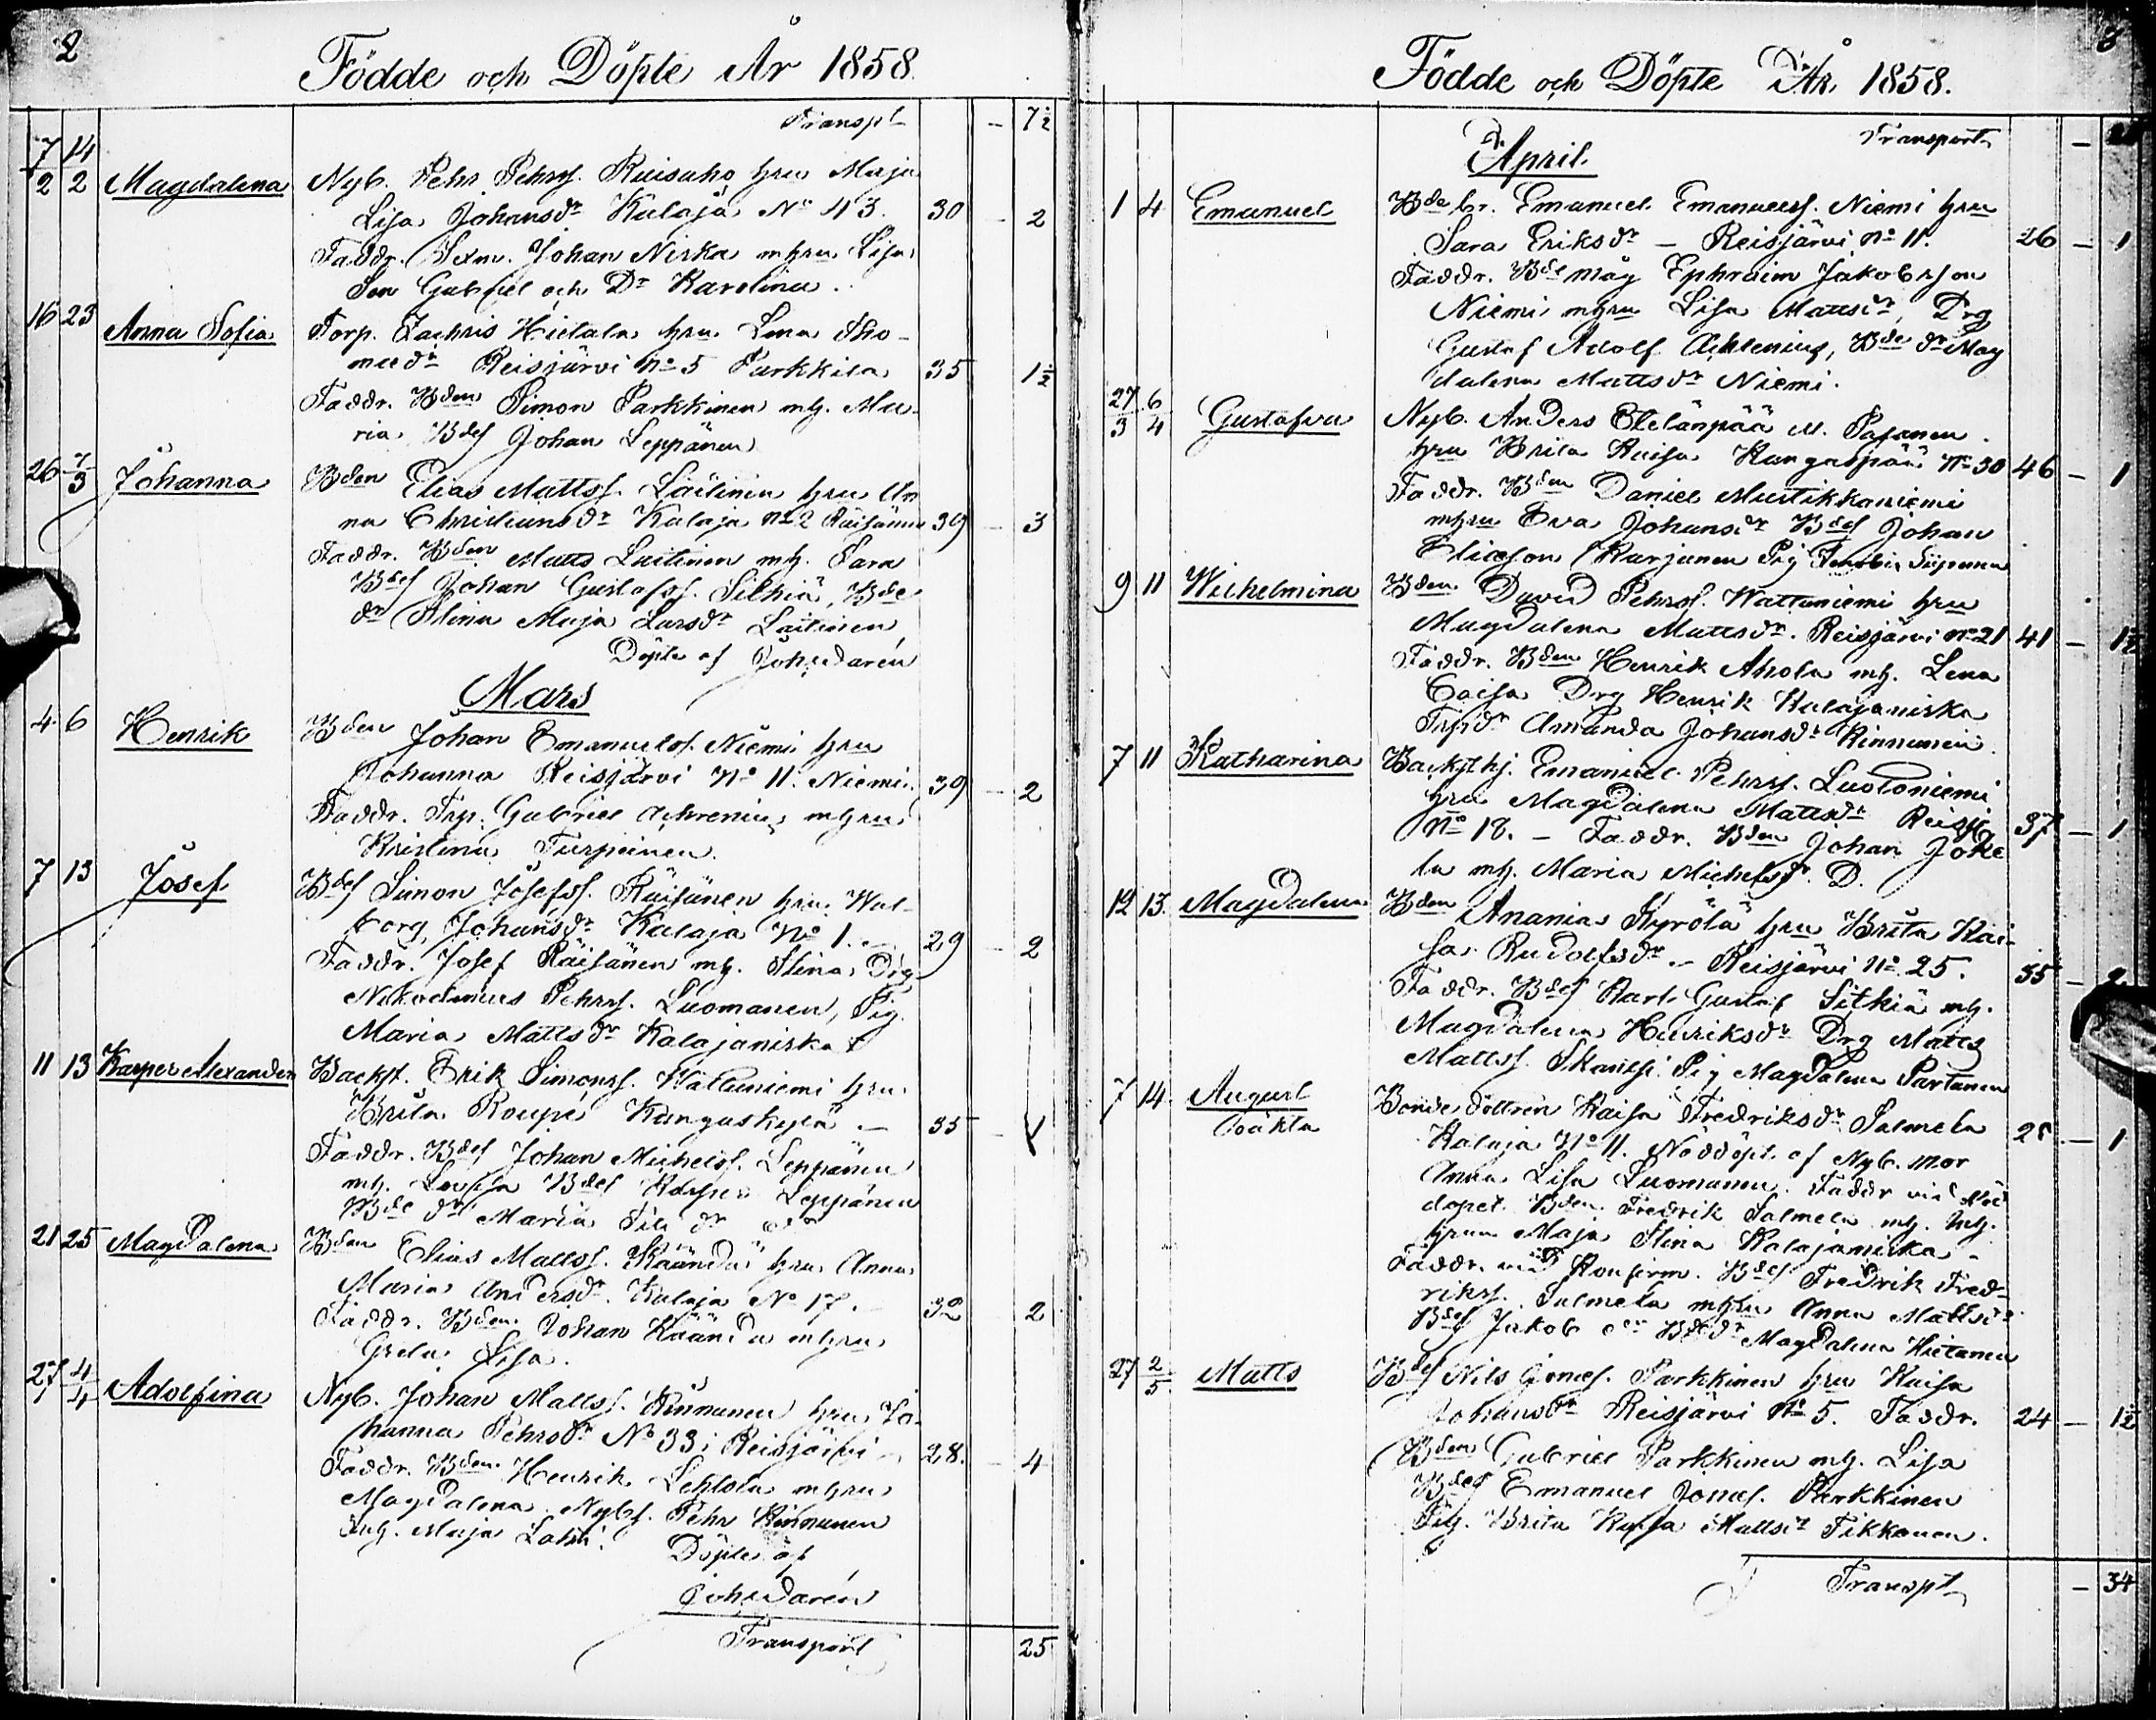 2
Födde och Döpte År 1858.
Transpt — 7½
7/2 14/2 Magdalena Nyb. Pehr Pehrss. Ruisaho hru Maja
Lisa Johansdr Kalaja No 43. 30 - 2
Faddr. Sexm. Johan Niska mhru Lisa
Son Gabriel och Dr Karolina.
16 23 Anna Sofia Torp. Zachris Hietala hru Lena Tho-
masdr Reisjärvi No 5 Parkkila 35 1½
Faddr. Bden Simon Parkkinen mh. Ma-
ria, Bdes Johan Leppänen
26 7/3 Johanna Bden Elias Mattss. Laitinen hru An
na Christiansdr Kalaja No 2 Räisänen 39 - 3
Faddr. Bden Matts Laitinen mh. Sara
Bdes Johan Gustafss. Sitkiä, Bde
dr Stina Maja Larsdr Laitinen
Döpte af Joh. Udarén
Mars
4 6 Henrik Bden Johan Emanuelss. Niemi hru
Johanna Reisjärvi No 11. Niemi. 39 - 2
Faddr. Trp. Gabriel Achrenius mhru
Kristina Turpeinen.
7 13 Josef Bdes Simon Josefss. Räisänen hru Wal-
borg Johansdr Kalaja No 1. — 29 - 2
Faddr. Josef Räisänen mh. Stina, Drg
Nikodemus Pehrss. Luomanen, Pig.
Maria Mattsdr Kalajaniska
11 13 Kasper Alexander Backst. Erik Simonss. Hattuniemi hru
Brita Roupé Kangaskylä — 35 -
Faddr. Bdes Johan Michelss. Leppänen
mh. Lovisa Bdes Kasper Leppänen
Bde dr Maria
21 25 Magdalena Bden Elias Mattss. Kääntä hru Anna
Maria Andersdr. Kalaja No 17. — 32 2
Faddr. Bden Johan Kääntä mhru
Greta Lisa.
27 4/4 Adolfina Nyb. Johan Mattss. Kinnunen hru Jo-
hanna Pehrsdr No 33 i Reisjärvi 28. - 4
Faddr. Bden. Henrik Lehtola mhru
Magdalena. Nybs. Pehr Kinnunen
mh. Maja Lahti. Döpte af
Joh. Udarén
Transport 25
3
Födde och Döpte År 1858.
Transport —
April.
1 4 Emanuel Bde br. Emanuel Emanuelss. Niemi hru
Sara Eriksdr — Reisjärvi No 11. 26 — 1
Faddr. Bde måg Ephraim Jakobsson
Niemi mhru Lisa Mattsdr, Drg
Gustaf Adolf Achrenius, Bde dr Mag
dalena Mattsdr Niemi.
27/3 6/4 Gustafva Nyb. Anders Etelänpää M. Pajanen.
hru Brita Kaisa Kangaspää No 30 46 — 1
Faddr. Bden Daniel Mustikkaniemi
mhru Eva Johansdr Bdes Johan
Eliasson Karjanen Pig
9 11 Wilhelmina Bden David Pehrss. Hattuniemi hru
Magdalena Mattsdr. Reisjärvi No 21 41 — 1½
Faddr. Bden Henrik Ahola mh. Lena
Caisa Drg Henrik Kalajaniska
Trpdr Amanda Johansdr Kinnunen.
7 11 Katharina Backsthj. Emanuel Pehrss. Luotoniemi
hru Magdalena Mattsdr Reisj.
No 18. — Faddr. Bden Johan Joke 37 — 1
la mh. Maria Michelsdr. D.
12 13. Magdalena Bden Ananias Kyrölä hru Brita Kai-
sa Rudolfsdr. — Reisjärvi No 25. 35 — 2
Faddr. Bdes Karl Gustaf Sitkiä mh.
Magdalena Henriksdr Drg Matts
Mattss. Skantsi. Pig Magdalena Partanen
7 14. August Bonde dottren Kaisa Fredriksdr Salmela
Oäkta Kalaja No 11. Nöddöpt. af Nyb. mor 28 — 1
Anna Lisa Luomanen. Faddr vid Nöd
dopet Bden. Fredrik Salmela mh. Inh.
hrun Maja Stina Kalajaniska —
Faddr. vid Konfirm. Bdes Fredrik Fred-
rikss. Salmela mhru Anna Mattsdr
Bdes Jakob och Bdedr Magdalena Hietanen
27 2/5 Matts Bdes Nils Jonass. Parkkinen hru Kaisa
Johansdr Reisjärvi No 5. Faddr. 24 — 1½
Bden Gabriel Parkkinen mh. Lisa
Bdes Emanuel Jonass. Parkkinen
Pig. Brita Kaisa Mattsdr Tikkanen.
Transpt — 34